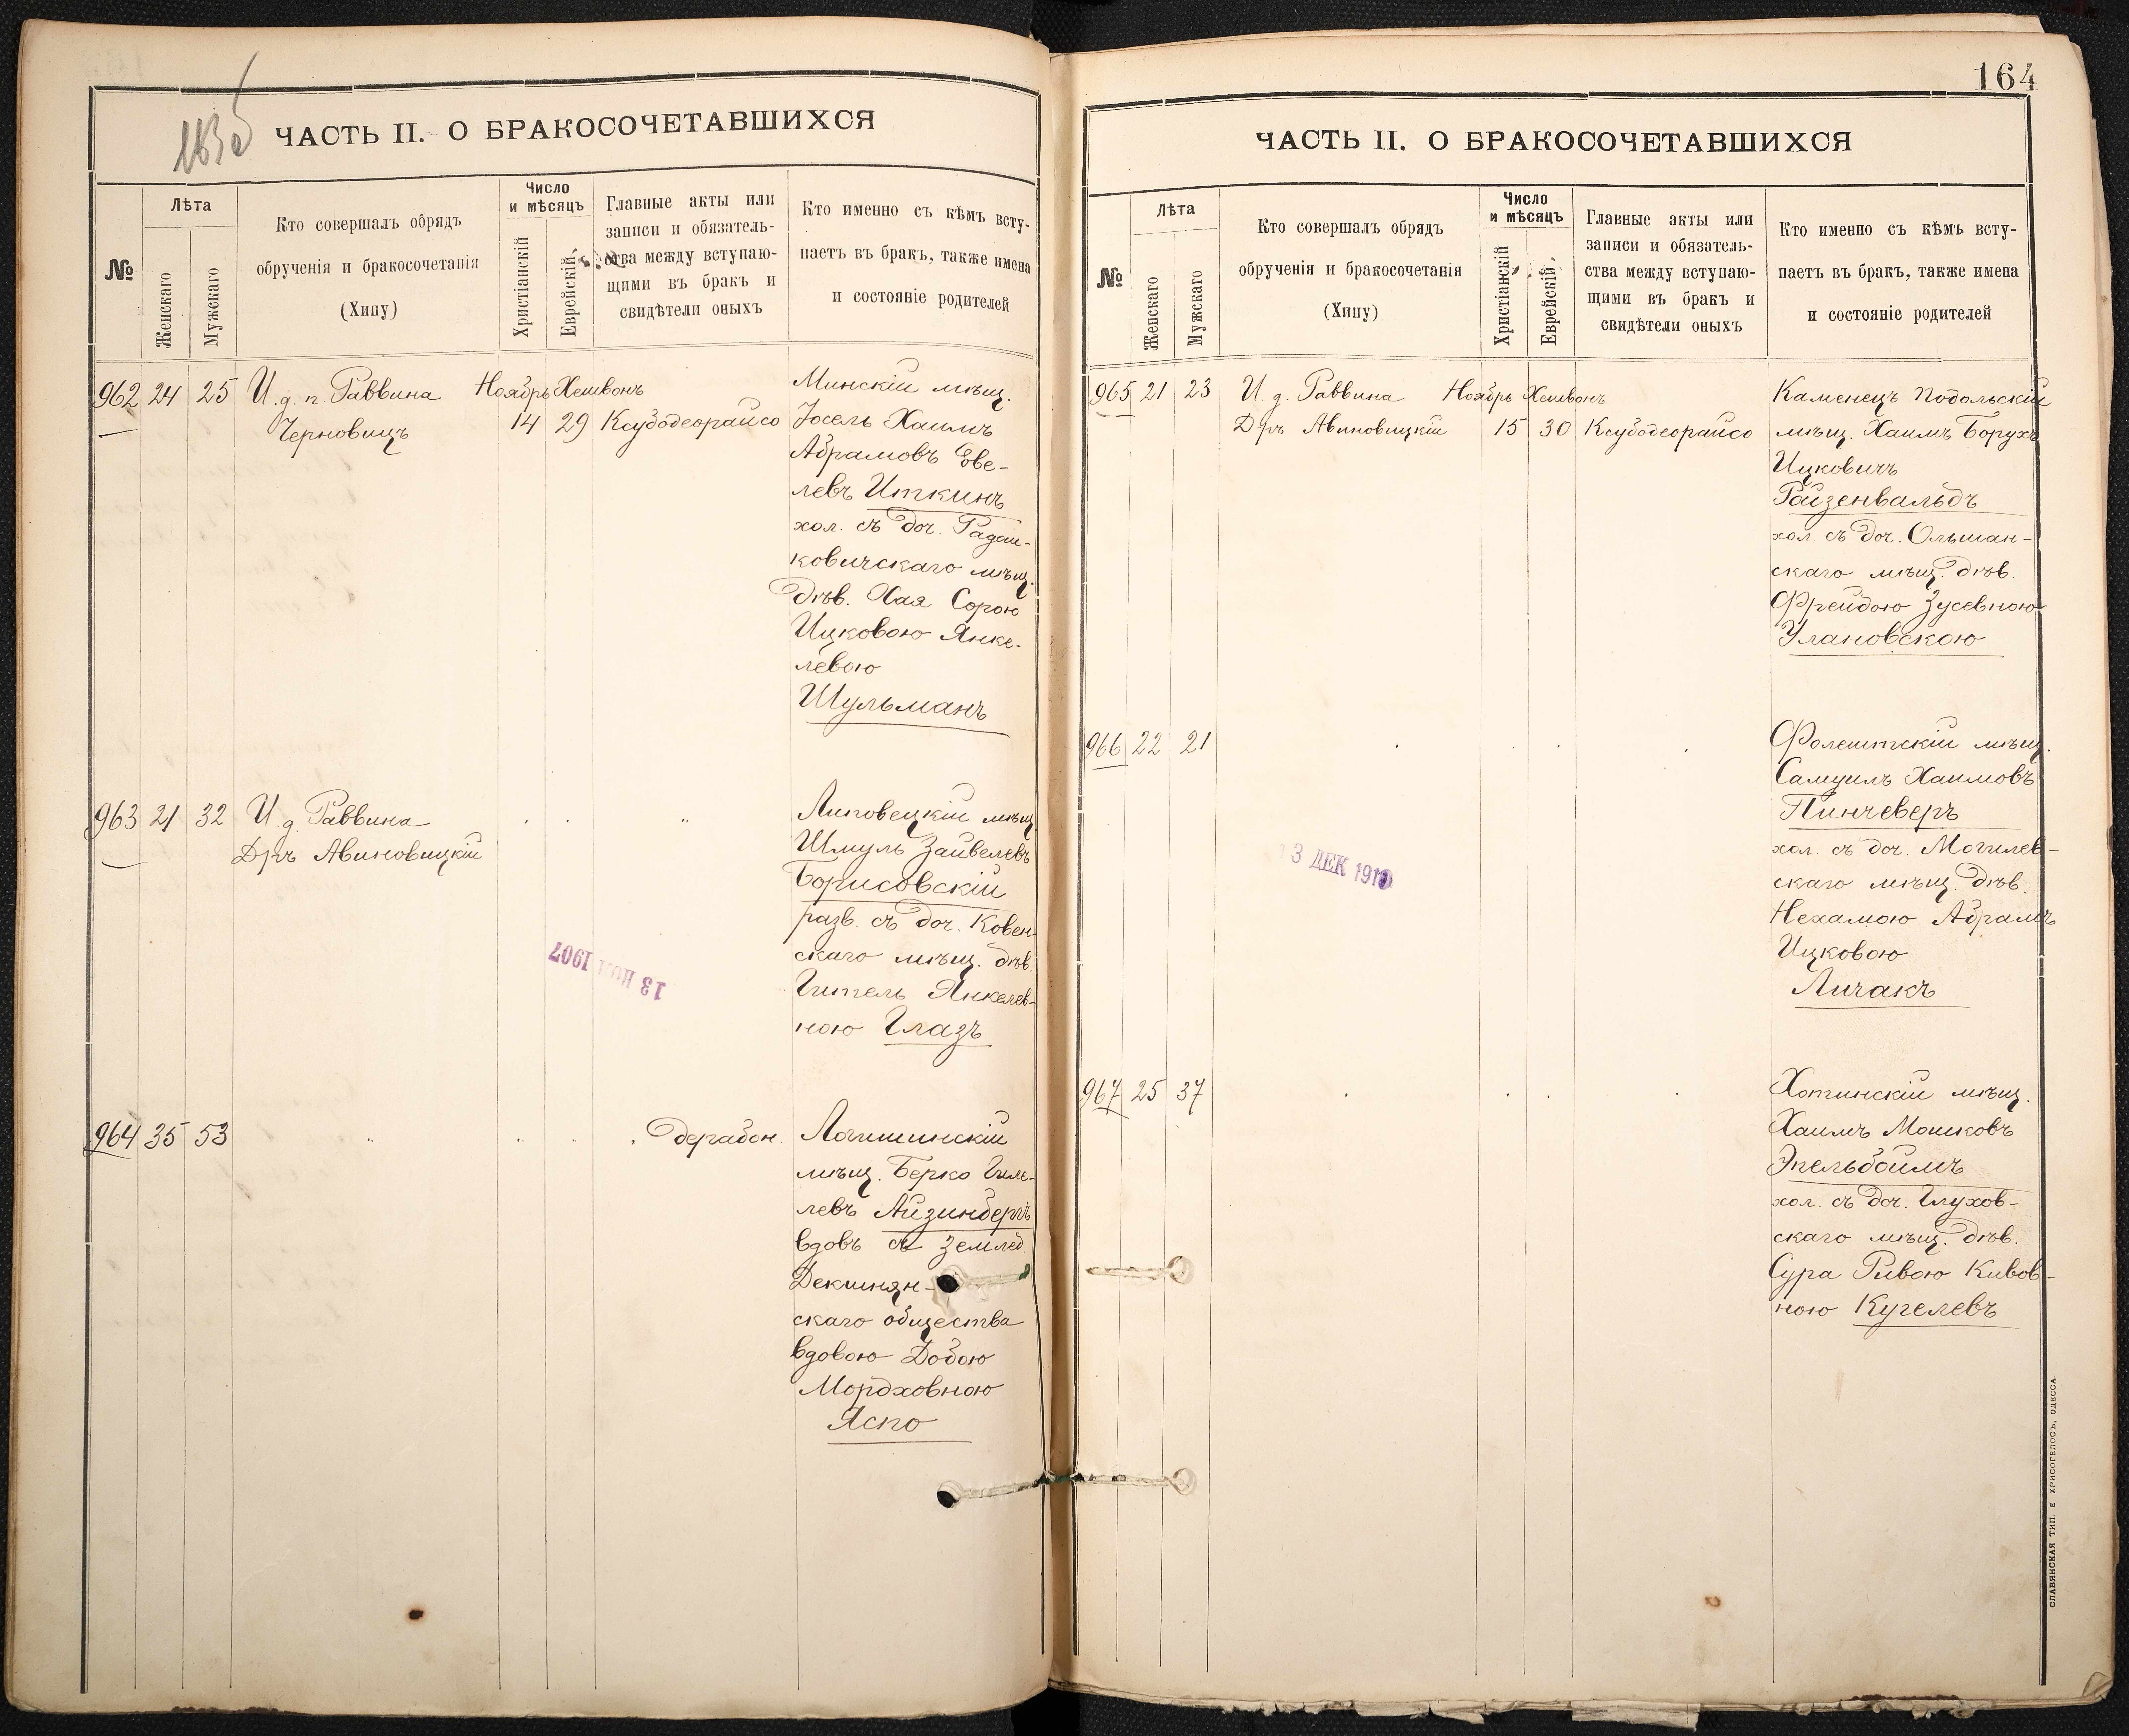 ЧАСТЬ II. О БРАКОСОЧЕТАВШИХСЯ
№
Лѣта
Женскаго
Мужскаго
Кто совершалъ обрядъ
обрученія и бракосочетанія
(Хипу)
Число
и мѣсяцъ
Христіанскій
Еврейскій
Главные акты или
записи и обязатель-
ства между вступаю-
щими въ бракъ и
свидѣтели оныхъ
Кто именно съ кѣмъ всту-
паетъ въ бракъ, также имена
и состояніе родителей
962 24 25 И. д. п. Раввина Ноябрь Хешвонъ Минскій мѣщ.
Черновицъ 14 29 Ксубодеорайсо Іосель Хаимъ
Абрамовъ Еве-
левъ Иткинъ
хол. съ доч. Радош-
ковичскаго мѣщ.
дѣв. Хая Сорою
Ицковою Янке-
левою
Шульманъ
963 21 32 И. д. Раввина " Липовецкій мѣщ.
Дръ Авиновицкій Шмуль Зайвелевъ
Борисовскій
разв. съ доч. Ковен-
скаго мѣщ. дѣв.
Гитель Янкелев-
ною Глазъ
13 1907
964 35 53 " дерабон. Логишинскій
мѣщ. Берко Гиле-
левъ Айзинбергъ
вдовъ съ землед.
Декшнян-
скаго общества
вдовою Добою
Мордховною
Яспо
164
ЧАСТЬ II. О БРАКОСОЧЕТАВШИХСЯ
№
Лѣта
Женскаго
Мужскаго
Кто совершалъ обрядъ
обрученія и бракосочетанія
(Хипу)
Число
и мѣсяцъ
Христіанскій
Еврейскій
Главные акты или
записи и обязатель-
ства между вступаю-
щими въ бракъ и
свидѣтели оныхъ
Кто именно съ кѣмъ всту-
паетъ въ бракъ, также имена
и состояніе родителей
965 21 23 И. д. Раввина Ноябрь Хешвонъ Каменецъ Подольскій
Дръ Авиновицкій 15 30 Ксубодеорайсо мѣщ. Хаимъ Борухъ
Ицковичъ
Ройзенвальдъ
хол. съ доч. Ольшан-
скаго мѣщ. дѣв.
Фрейдою Зусевною
Улановскою
966 22 21 Фолештскій мѣщ.
Самуилъ Хаимовъ
Пинчеверъ
хол. съ доч. Могилев-
скаго мѣщ. дѣв.
Нехамою Абрамъ
Ицковою
Личакъ
3 ДЕК 1910
967 25 37 Хотинскій мѣщ.
Хаимъ Мошковъ
Эпельбоймъ
хол. съ доч. Глухов-
скаго мѣщ. дѣв.
Сура Ривою Кивов-
ною Кугелевъ
СЛАВЯНСКАЯ ТИП. Е ХРИСОГЕЛОСЪ, ОДЕССА.